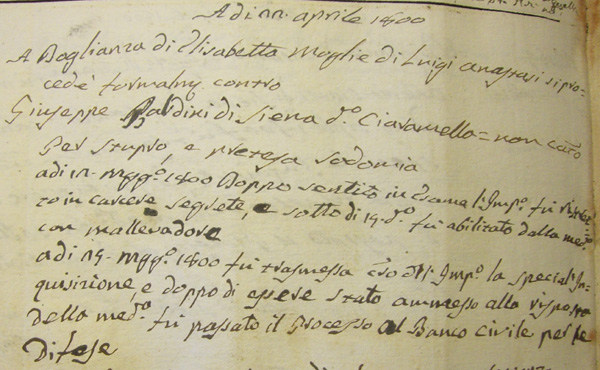 Adi 22. aprile 1800
A Doglianza di Elisabetta Moglie di Luigi anastasi si pro=
cedè formalm. contro
Giuseppe Baldini di Siena d.o Ciaramella = non cato
Per stupro, e pretesa sodomia
adi 12. Magg.o 1800 Doppo sentito in Esame l'Imp.o fù
to in carcere segrete, e sotto di 19. d.o fù abilitato dalla med.
con mallevadore
adi 29. Magg.o 1800 fù trasmessa c̃ro d.l'Imp.o la special'In=
quisizione, e doppo di essere stato ammesso alla risposta
della med.a fù passato il Processo al Banco civile per le
Difese